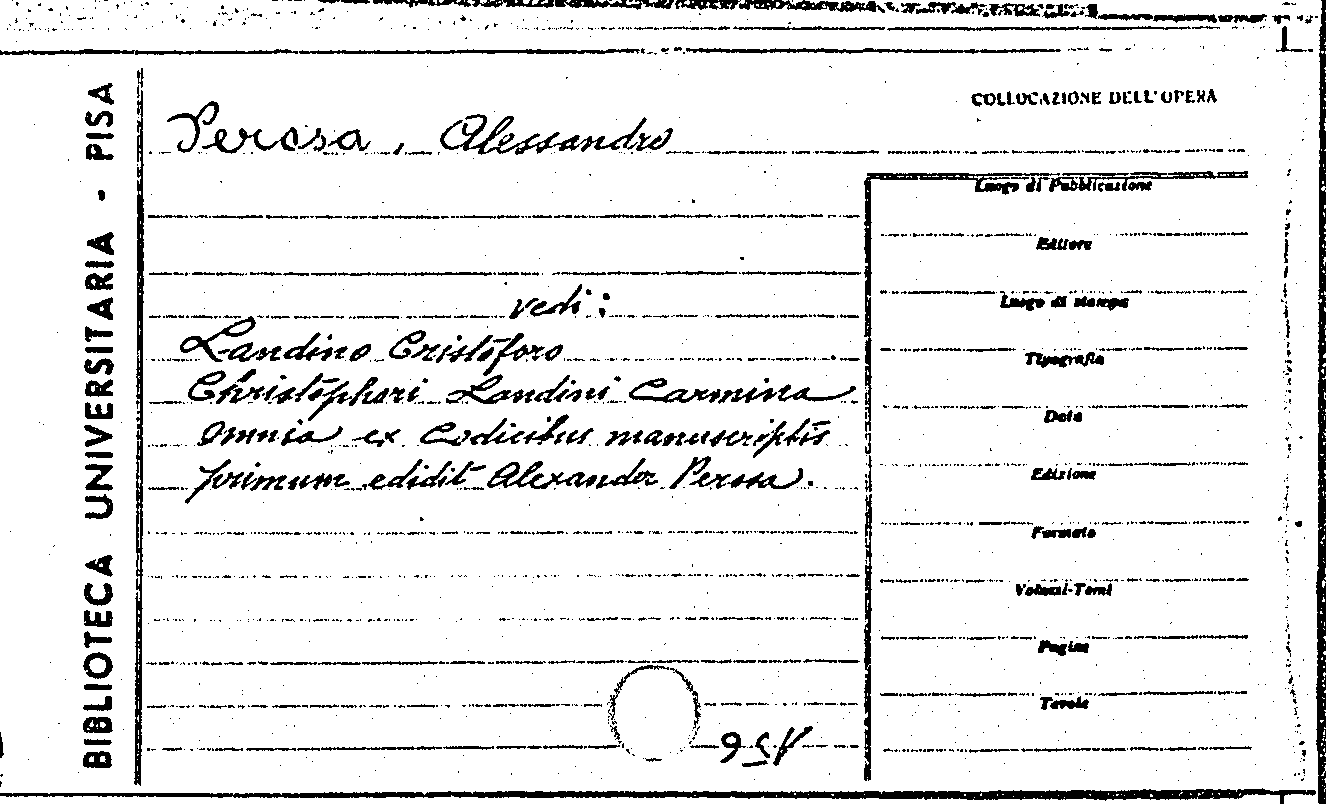 BIBLIOTECA UNIVERSITARIA - PISA
Perosa, Alessandro
vedi:
Landino Cristoforo
Christophori Landini Carmina
omnia ex codicibus manuscriptis
primum edidit Alexander Perosa.
COLLOCAZIONE DELL'OPERA
Luogo di Pubblicazione
Editore
Luogo di stampa
Tipografia
Data
Edizione
Formato
Volumi-Tomi
Pagine
Tavole